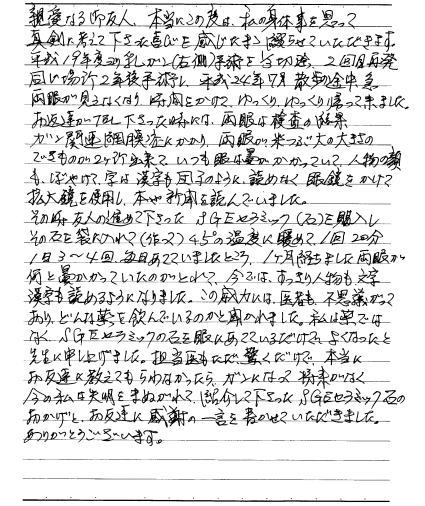 親愛なる御友人、本当にこの度は、私の身体事を思って
真剣に考えて下さった喜びを感じたまま綴らせていただきます。
平成19年度の乳しガン(右側)手術を
同じ場所2年後手術し、平成24年7月散歩途中急
両眼が見えなくなり、時間をかけて、ゆっくり、ゆっくり帰って来ました。
お友達が
ガン関連網膜症にかかり、両眼が米つぶ大の大きさの
できものが2ヶ所出来て、いつも眼は曇がかかっていて、人物の顔
も、ぼやけて、字は漢字も団子のように、読めなく眼鏡をかけて
拡大鏡を使用し、本や新聞を読んでいました。
その時友人の進めて下さった SGEセラミック(石)を購入し
その石を袋に入れて(作って)45°の温度に暖めて 1回20分
1日3～4回、毎日あてていましたところ、1ヶ月経ちました両眼が
何と曇がかっていたのがとれて、今では、すっきり人物も文字
漢字も読めるようになりました。この威力には、医者も、不思議がって
おり、どんな薬を飲んでいるのかと聞かれました。私は薬では
なく、SGEセラミックの石を眼にあてているだけで、よくなったと
先生に申し上げました。担当医もただ驚くだけで、本当に
お友達に教えてもらわなかったら、ガンになって将来がなく
今の私は失明をまぬがれて、紹介して下さった SGEセラミック石の
おかげと、お友達に感謝の一言を書かせていただきました。
ありがとうございます。